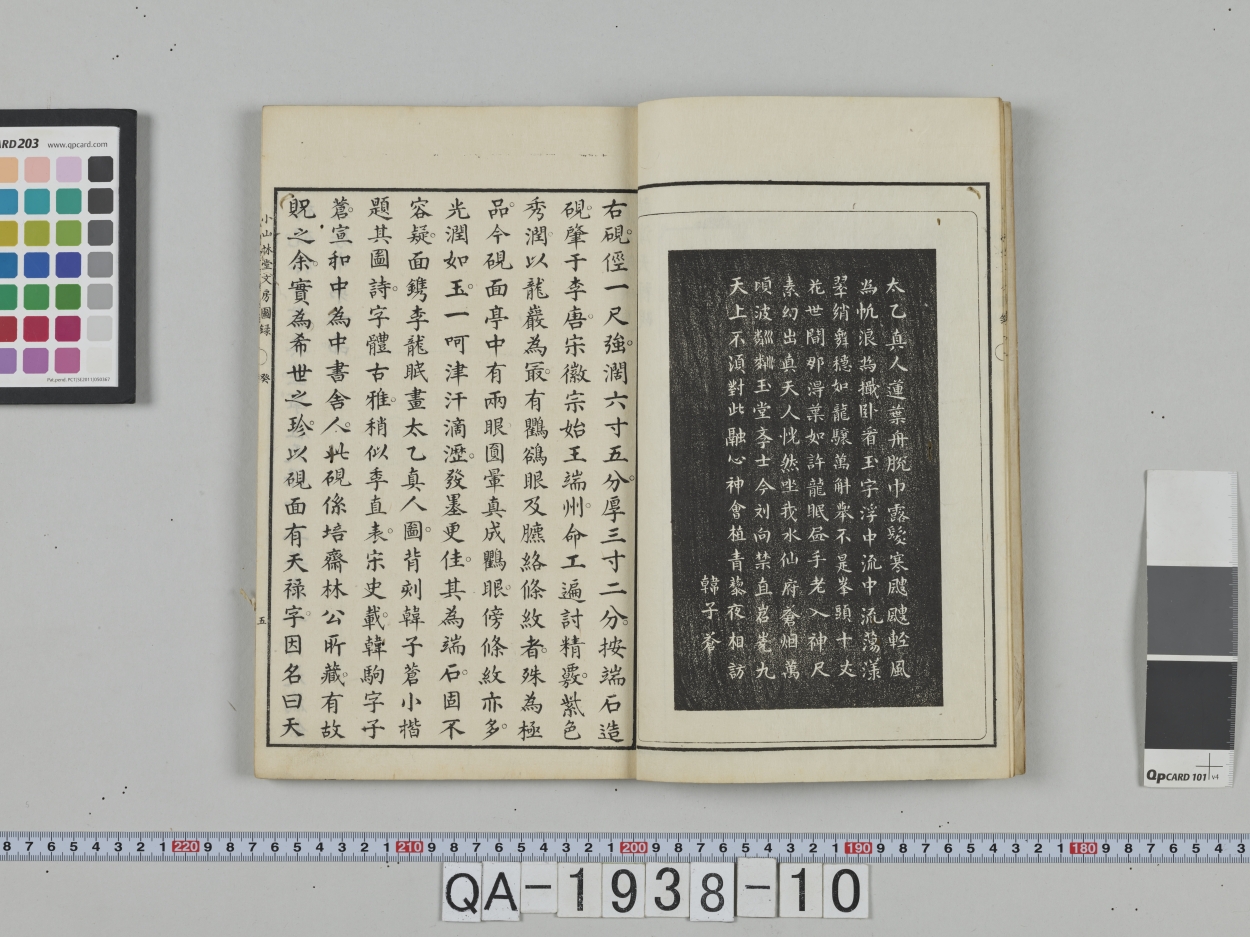 太乙真人蓮葉舟脫巾露髮寒飂飂輕風
為帆浪為檝臥看玉字浮中流中流蕩漾
翠綃舞穩如龍驤萬斛舉不是峯頭十丈
花世間那得葉如許龍眠畫手老入神尺
素幻出真天人恍然坐我水仙府蒼烟萬
頃波粼粼玉堂學士今刘向禁直岧嶤九
天上不須對此融心神會植青藜夜相訪
韓子蒼
右硯徑一尺強濶六寸五分厚三寸二分按端石造
硯肇于李唐宋徽宗始王端州命工遍討精覈紫色
秀潤以龍巖為㝡有鸜鵒眼及臙絡條紋者殊為極
品今硯面亭中有兩眼圓暈真成鸜眼傍條紋亦多
光潤如玉一呵津汗滴瀝發墨更佳其為端石固不
容疑面鐫李龍眠畫太乙真人圖背刻韓子蒼小楷
題其圖詩字體古雅稍似季直表宋史載韓駒字子
蒼宣和中為中書舍人此硯係培齋林公所藏有故
貺之余實為希世之珍以硯面有天祿字因名曰天
小山林堂文房圖録
癸
五
CARD 203 www.qpcard.com
QpCARD 101 v4
8 7 6 5 4 3 2 1 220 9 8 7 6 5 4 3 2 1 210 9 8 7 6 5 4 3 2 1 200 9 8 7 6 5 4 3 2 1 190 9 8 7 6 5 4 3 2 1 180 9 8 7 6 5 4 3
QA-1938-10